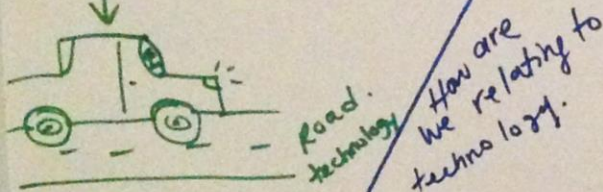 Road.
technology
How are
we relating to
technology.